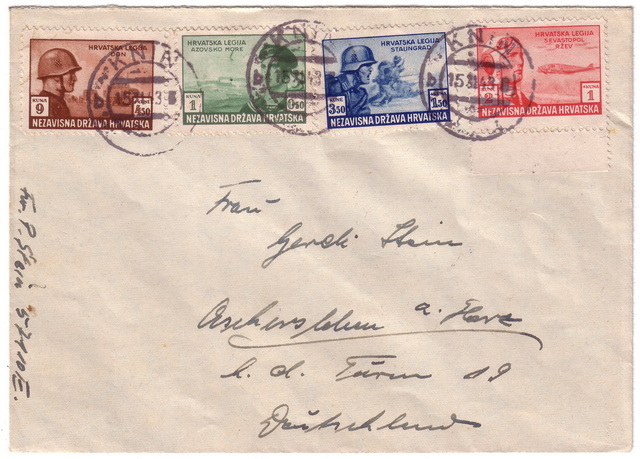 HRVATSKA LEGIJA
DON
KUNA
9
KUNA
4.50
NEZAVISNA DRŽAVA HRVATSKA
HRVATSKA LEGIJA
AZOVSKO MORE
KUNA
1
0.50
NEZAVISNA DRŽAVA HRVATSKA
HRVATSKA LEGIJA
STALINGRAD
KUNA
3.50
KUNA
1.50
NEZAVISNA DRŽAVA HRVATSKA
HRVATSKA LEGIJA
SEVASTOPOL
RŽEV
KUNA
1
NEZAVISNA DRŽAVA HRVATSKA
KNIN
Frau
Gerdi Stein
Aschersleben a. Harz
h. d. Türm 19
Deutschland
P. Stein